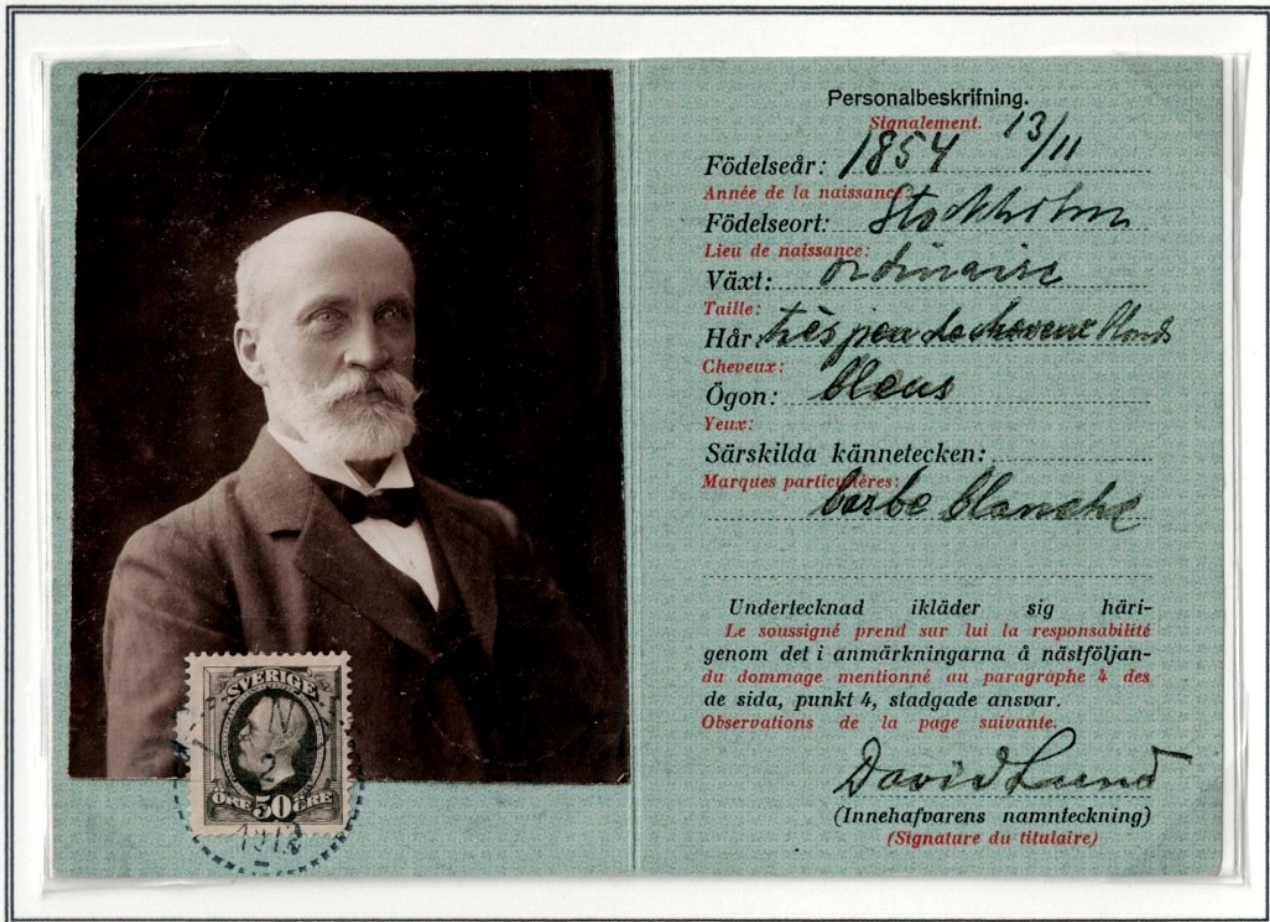 Personalbeskrifning.
Signalement.
Födelseår: 1854 13/11
Année de la naissance:
Födelseort: Stockholm
Lieu de naissance:
Växt: ordinaire
Taille:
Hår: très peu de cheveux blonds
Cheveux:
Ögon: bleus
Yeux:
Särskilda kännetecken:
Marques particulières:
barbe blanche
Undertecknad ikläder sig häri-
Le soussigné prend sur lui la responsabilité
genom det i anmärkningarna å nästföljan-
du dommage mentionné au paragraphe 4 des
de sida, punkt 4, stadgade ansvar.
Observations de la page suivante.
David Lund
(Innehafvarens namnteckning)
(Signature du titulaire)
SVERIGE
2
ÖRE 50 ÖRE
1912